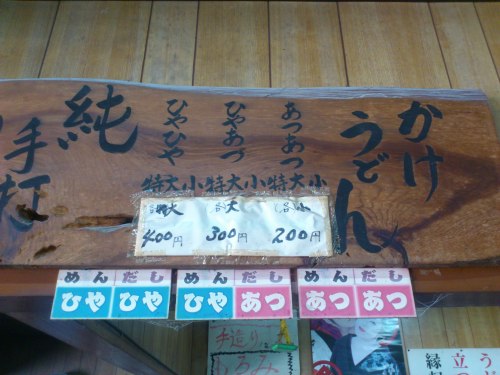 かけ
うどん
あつあつ
小
大
特
ひやあつ
小
大
特
ひやひや
小
大
特
純
手打
各小
200円
各大
300円
特大
400円
めん だし
ひや ひや
めん だし
ひや あつ
めん だし
あつ あつ
手造り
もろみ
う
立
縁